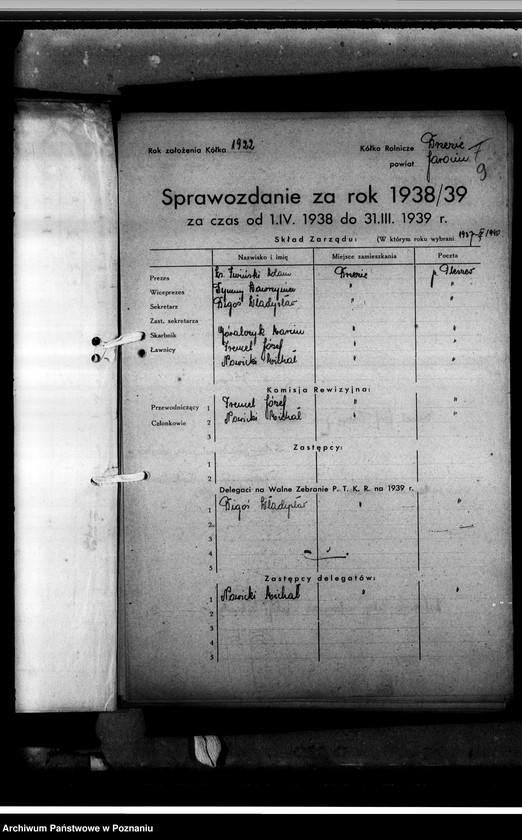 Rok założenia Kółka 1922
Kółko Rolnicze
powiat Jarocin
9
Sprawozdanie za rok 1938/39
za czas od 1.IV. 1938 do 31.III. 1939 r.
Skład Zarządu: (W którym roku wybrani 1937 1940
Nazwisko i imię Miejsce zamieszkania Poczta
Prezes Adam
Wiceprezes "
Sekretarz Władysław " "
Zast. sekretarza
Skarbnik Marcin " "
Ławnicy Józef " "
Nowicki Michał " "
Komisja Rewizyjna:
Przewodniczący 1 Józef " "
Członkowie 2 Nowicki Michał " "
3
Zastępcy:
1
2
Delegaci na Walne Zebranie P. T. K. R. na 1939 r.
1 Władysław " "
2
3
4
5
Zastępcy delegatów:
1 Nowicki Michał " "
2
3
4
5
Archiwum Państwowe w Poznaniu